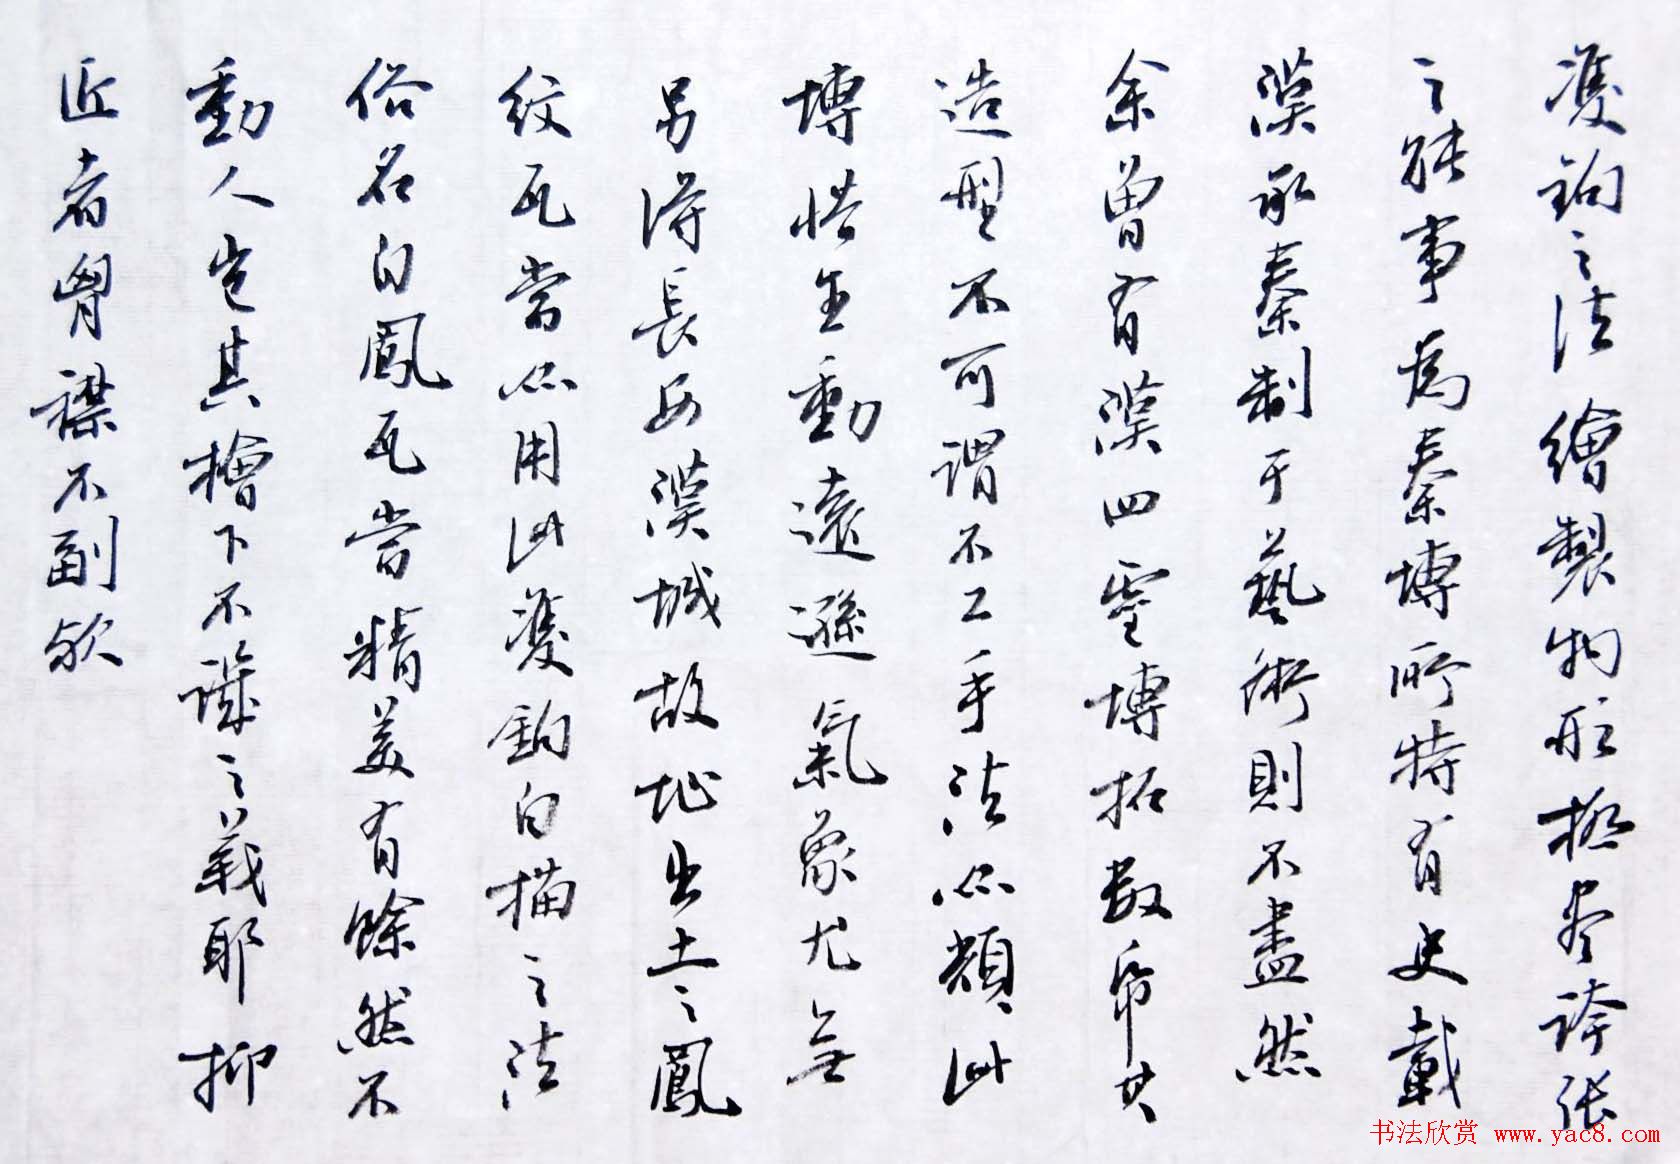 雙鉤之法繪製物形極盡誇张
之能事為秦塼所特有史載
漢承秦制于藝術則不盡然
余曾有漢四靈塼拓數帋其
造型不可謂不工手法亦類此
塼惜生動遠遜氣象尤無
另得長安漢城故址出土之鳳
紋瓦當亦用此雙鉤白描之法
俗名白鳳瓦當精美有餘然不
動人豈其檜下不譏之義耶抑
匠者胷襟不副欤
书法欣赏 www.yac8.com